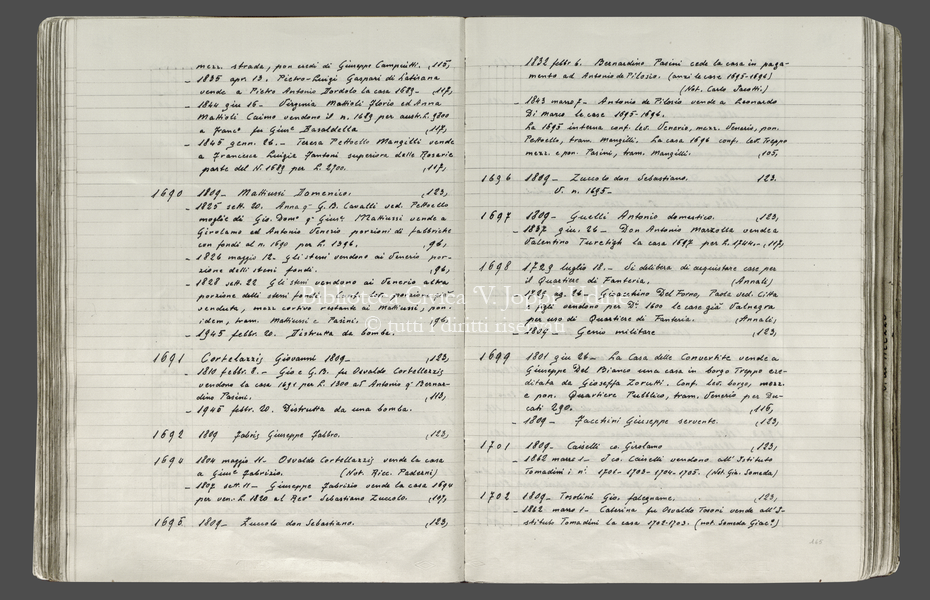 mezz. strada, pon. eredi di Giuseppe Campiutti. ,115,
- 1835 apr. 13. Pietro-Luigi Gaspari di Latisana
vende a Pietro Antonio Zardolo la casa 1689- ,117,
- 1844 giu 16- Virginia Mattioli Florio ed Anna
Mattioli Caimo vendono il n. 1689 per austr. L. 9800
a Franc° fu Giusᵉ Basaldella ,117,
- 1845 genn. 26.- Teresa Pettoello Mangilli vende
a Francesca Luigia Fantoni superiora delle Rosarie
parte del N. 1689 per L. 2700. ,117,
1690 1809- Mattiussi Domenico. ,123,
- 1825 sett. 20. Anna qᵐ G.B. Cavalli ved. Pettoello
moglie di Gio. Domᵒ qᵐ Giusᵉ Mattiussi vende a
Girolamo ed Antonio Venerio porzioni di fabbriche
con fondi al n. 1690 per L. 1396. ,96,
- 1826 maggio 12. Gli stessi vendono ai Venerio por-
zione delli stessi fondi. ,96,
- 1828 sett. 22 Gli stessi vendono ai Venerio altra
porzione delli stessi fondi.
venduta, mezz. cortivo restante ai Mattiussi, pon.
idem, tram. Mattiussi e Pasini. ,96,
- 1945 febbr. 20. Distrutta da bomba.
1691 Cortelazzis Giovanni 1809- ,123,
- 1810 febbr. 8.- Gio e G.B. fu Osvaldo Cortellazzis
vendono la casa 1691 per L. 1300 ad Antonio qᵐ Bernar-
dino Pasini. ,113,
- 1945 febbr. 20. Distrutta da una bomba.
1692 1809 Fabris Giuseppe fabbro. ,123,
1694 1804 maggio 11- Osvaldo Cortellazzis vende la casa
a Giusᵉ Fabrizio. (Not. Ricc. Paderni)
- 1807 sett. 11- Giuseppe Fabrizio vende la casa 1694
per ven. L. 1820 al Revᵒ Sebastiano Zuccolo. ,119,
1695 1809- Zuccolo don Sebastiano. ,123,
1832 febbr 6. Bernardino Pasini cede la casa in paga-
mento ad Antonio de Pilosio. (anzi le case 1695-1696)
(Not. Carlo Jacotti.)
- 1843 marzo 7- Antonio de Pilosio vende a Leonardo
Di Marco le case 1695-1696.
La 1695 interna conf. lev. Venerio, mezz. Venerio, pon.
Pettoello, tram. Mangilli. La casa 1696 conf. lev. Treppo
mezz. e pon. Pasini, tram. Mangilli. ,105,
1696 1809- Zuccolo don Sebastiano. 123.
V. n. 1695-
1697 1809- Guelli Antonio domestico. ,123,
- 1837 giu. 26- Don Antonio Marzolla vende a
Valentino Turetigh la casa 1697 per L. 1744.- ,117,
1698 1729 luglio 18.- Si delibera di acquistare case per
il Quartiere di Fanteria. (Annali)
- 1729 ag. 26- Gioacchino Del Forno, Paola ved. Citta
e figli vendono per Dᵗⁱ 1200 le case già Valnegra
per uso di Quartiere di Fanteria. (Annali,)
- 1809- Genio militare ,123,
1699 1801 giu 26- La Casa delle Convertite vende a
Giuseppe Del Bianco una casa in borgo Treppo ere-
ditata da Gioseffa Zorutti. Conf. lev. borgo, mezz.
e pon. Quartiere Pubblico, tram. Venerio per Du-
cati 290. ,116,
- 1809- Facchini Giuseppe servente. ,123,
1701 1809- Caiselli co. Girolamo ,123,
- 1862 marzo 1- I co. Caiselli vendono all'Istituto
Tomadini i nⁱ 1701-1703-1704-1705. (Not. Gia. Someda)
1702 1809- Tosolini Gio. falegname. ,123,
- 1862 marzo 1- Caterina fu Osvaldo Tosoni vende all'I-
stituto Tomadini la casa 1702-1703. (not. Someda Giacᵒ)
165
Biblioteca Civica V. Joppi Udine
© tutti i diritti riservati